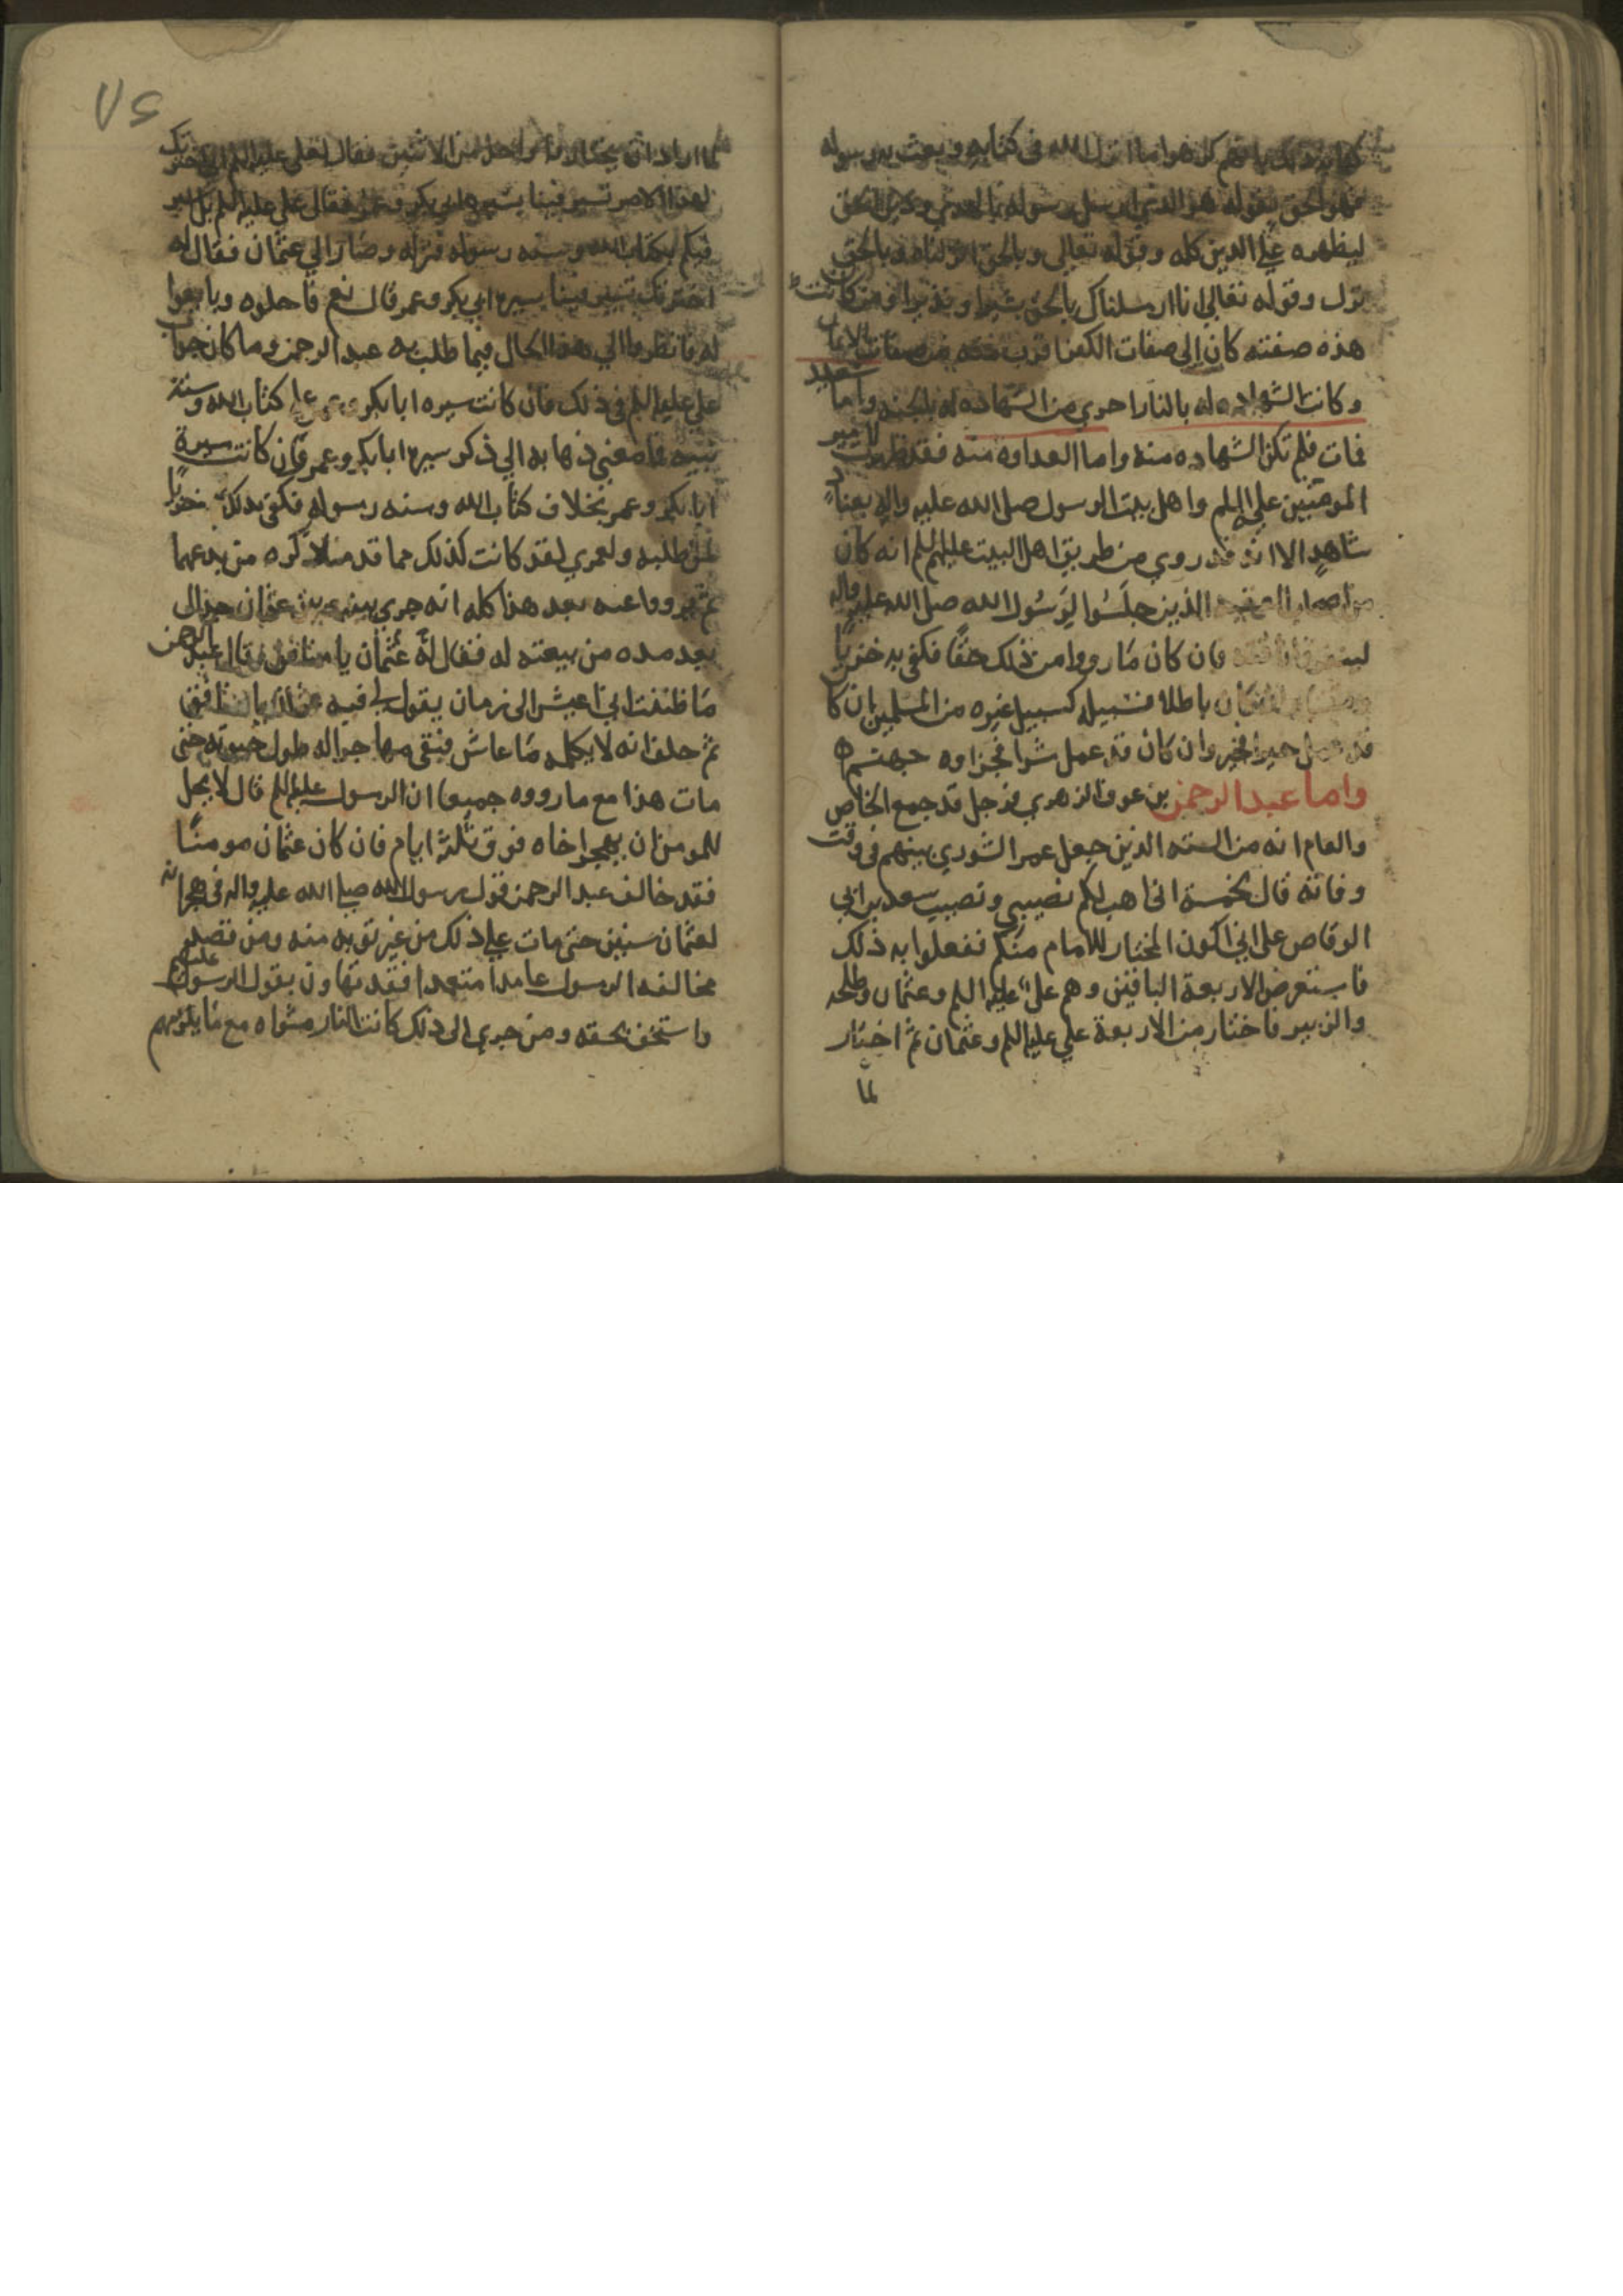 كل هذا مما انزل الله في كتابه وبعث به رسوله
فهو الحق بقوله هو الذي ارسل رسوله بالهدي ودين الحق
ليظهره علي الدين كله وقوله تعالي وبالحق انزلناه وبالحق
نزل وقوله تعالي انا ارسلناك بالحق بشيرا ونذيرا فمن كانت
هذه صفته كان الي صفات الكفر اقرب منه من صفات الايمان
وكانت الشهاده له بالنار احري من الشهاده له بالجنه واما سعيد
فمات فلم تكن الشهاده منه واما العداوه منه فقد ظهرت لامير
المومنين علي السلم واهل بيت الرسول صلى الله عليه واله
شاهد الا انه قد روي من طريق اهل البيت عليهم السلم انه كان
من اصحاب العقبه الذين جلسوا لرسول الله صلى الله عليه واله
لينفروا ناقته فان كان ما رووا من ذلك حقا فكفي به خزيا
وان كان باطلا فسبيله كسبيل غيره من المسلمين ان كان
قد عمل خيرا فخير وان كان قد عمل شرا فجزاوه جهنم
واما عبد الرحمن بن عوف الزهري فرجل قد جمع الخاص
والعام انه من السته الذين جعل عمر الشوري بينهم في وقت
وفاته قال لخمسة اني اهب لكم نصيبي ونصيب سعد بن ابي
الوقاص علي اني اكون المختار للامام منكم ففعلوا به ذلك
فاستعرض الاربعة الباقين وهم علي عليه السلم وعثمان وطلحه
والزبير فاختار من الاربعة علي عليه السلم وعثمان ثم اختار
لما
٧٥
لما اراد ان يختار واحدا من الاثنين فقال لعلي عليه السلم اني اخترتك
لهذا الامر تسير فينا بسيره ابي بكر وعمر فقال علي عليه السلم بل اسير
فيكم بكتاب الله وسنه رسوله فتركه وصار الي عثمان فقال له
اخترتك تسير فينا بسيره ابي بكر وعمر قال نعم فاحلوه وبايعوا
له فانظروا الي هذا الحال فيما طلب به عبد الرحمن وما كان جواب
علي عليه السلم في ذلك فان كانت سيره ابا بكر وعمر علي كتاب الله وسنة
نبيه فما معني ذهابه الي ذكر سيره ابا بكر وعمر وان كانت سيرة
ابا بكر وعمر بخلاف كتاب الله وسنه رسوله فكفي بذلك خزيا
لمن طلبه ولعمري لقد كانت كذلك مما قدمنا ذكره من بدعهما
ثم رووا عنه بعد هذا كله انه جري بينه وبين عثمان جدال
بعد مده من بيعته له فقال له عثمان يا منافق فقال عبد الرحمن
ما ظننت اني اعيش الى زمان يقول لي فيه عثمان يا منافق
ثم حلف انه لا يكلمه ما عاش فبقي مهاجرا له طول حيوته حتي
مات هذا مع ما رووه جميعا ان الرسول عليه السلم قال لا يحل
للمومن ان يهجر اخاه فوق ثلثة ايام فان كان عثمان مومنا
فقد خالف عبد الرحمن قول رسول الله صلى الله عليه واله في هجرانه
لعثمان سنين حتى مات علي ذلك من غير توبه منه ومن تصد
مخالفه الرسول عامدا متعمدا فقد تهاون بقول الرسول عليه السلم
واستخف بحقه ومن جري الى ذلك كانت النار مثواه مع ما يلزمهم